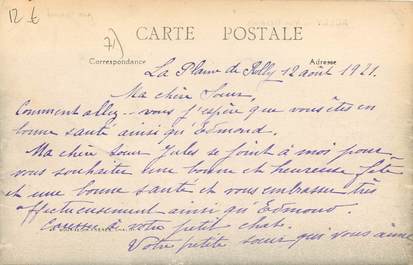 12 €
71)
CARTE POSTALE
Correspondance
Adresse
La Plaine de 12 août 1921.
Ma chère Sœur,
Comment allez-vous j'espère que vous êtes en
bonne santé ainsi qu'Edmond.
Ma chère sœur Jules se joint à moi pour
vous souhaiter une bonne et heureuse fête
et une bonne santé et vous embrasse très
affectueusement ainsi qu'Edmond.
à votre petit chat.
Votre petite sœur qui vous aime